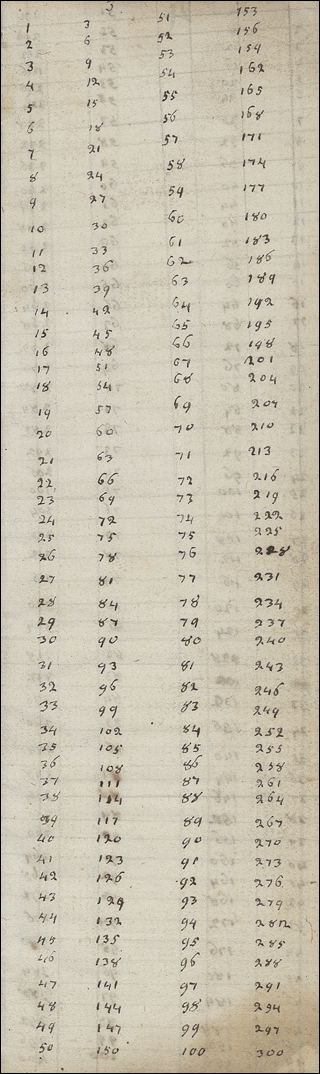 3
1 3 51 153
2 6 52 156
3 9 53 159
4 12 54 162
5 15 55 165
6 18 56 168
7 21 57 171
8 24 58 174
9 27 59 177
10 30 60 180
11 33 61 183
12 36 62 186
13 39 63 189
14 42 64 192
15 45 65 195
16 48 66 198
17 51 67 201
18 54 68 204
19 57 69 207
20 60 70 210
21 63 71 213
22 66 72 216
23 69 73 219
24 72 74 222
25 75 75 225
26 78 76 228
27 81 77 231
28 84 78 234
29 87 79 237
30 90 80 240
31 93 81 243
32 96 82 246
33 99 83 249
34 102 84 252
35 105 85 255
36 108 86 258
37 111 87 261
38 114 88 264
39 117 89 267
40 120 90 270
41 123 91 273
42 126 92 276
43 129 93 279
44 132 94 282
45 135 95 285
46 138 96 288
47 141 97 291
48 144 98 294
49 147 99 297
50 150 100 300